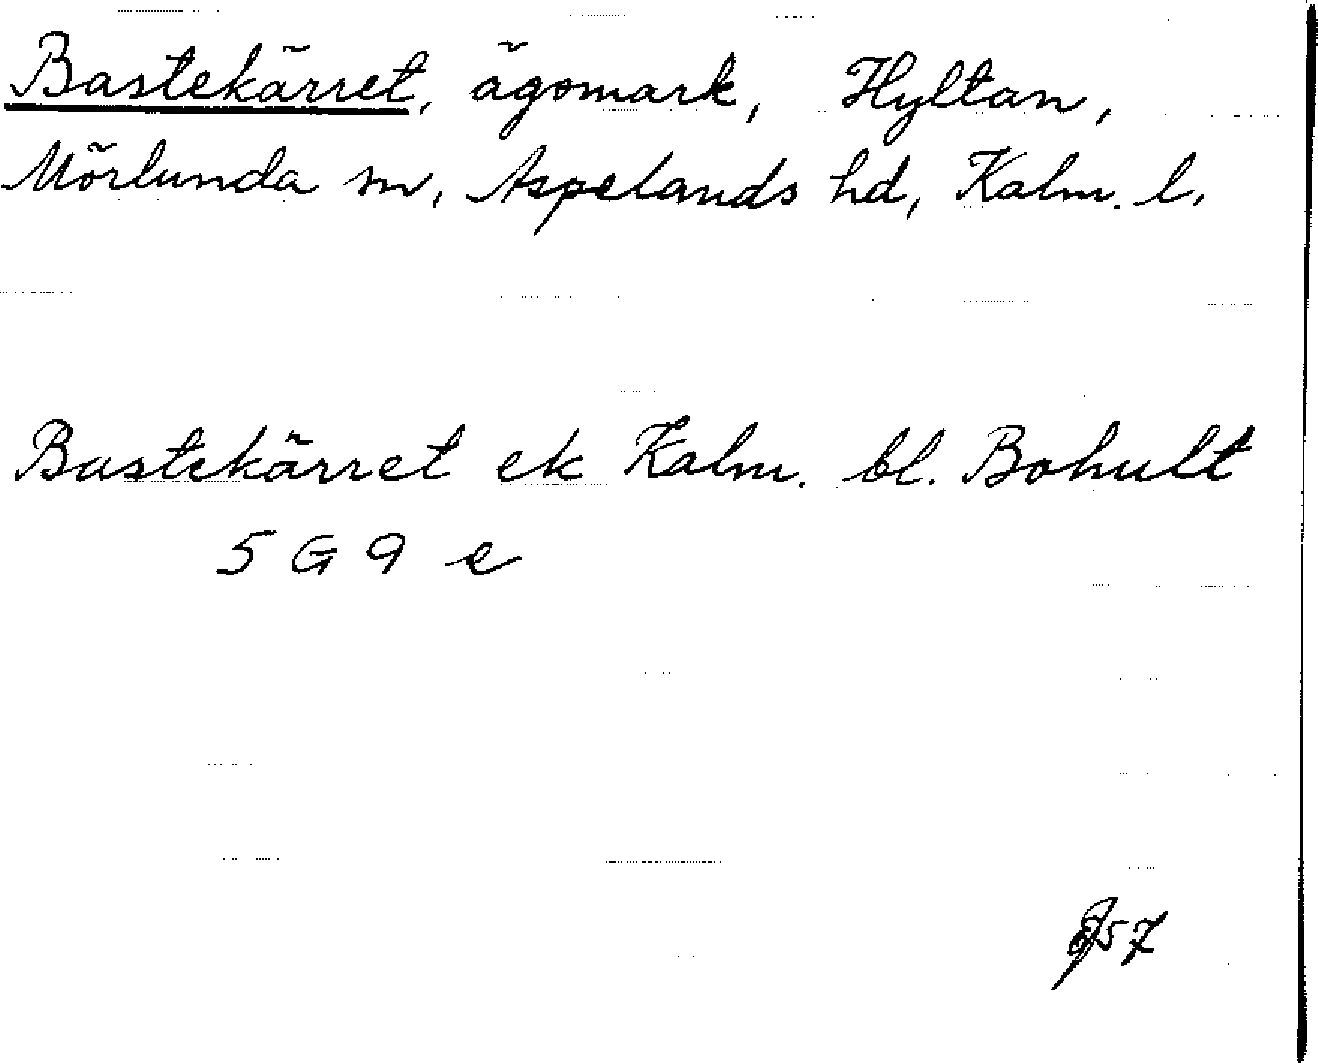 Bastekärret, ägomark, Hyltan,
Mörlunda sn, Aspelands hd, Kalm. l.
Bastekärret ek Kalm. bl. Bohult
5 G 9 e